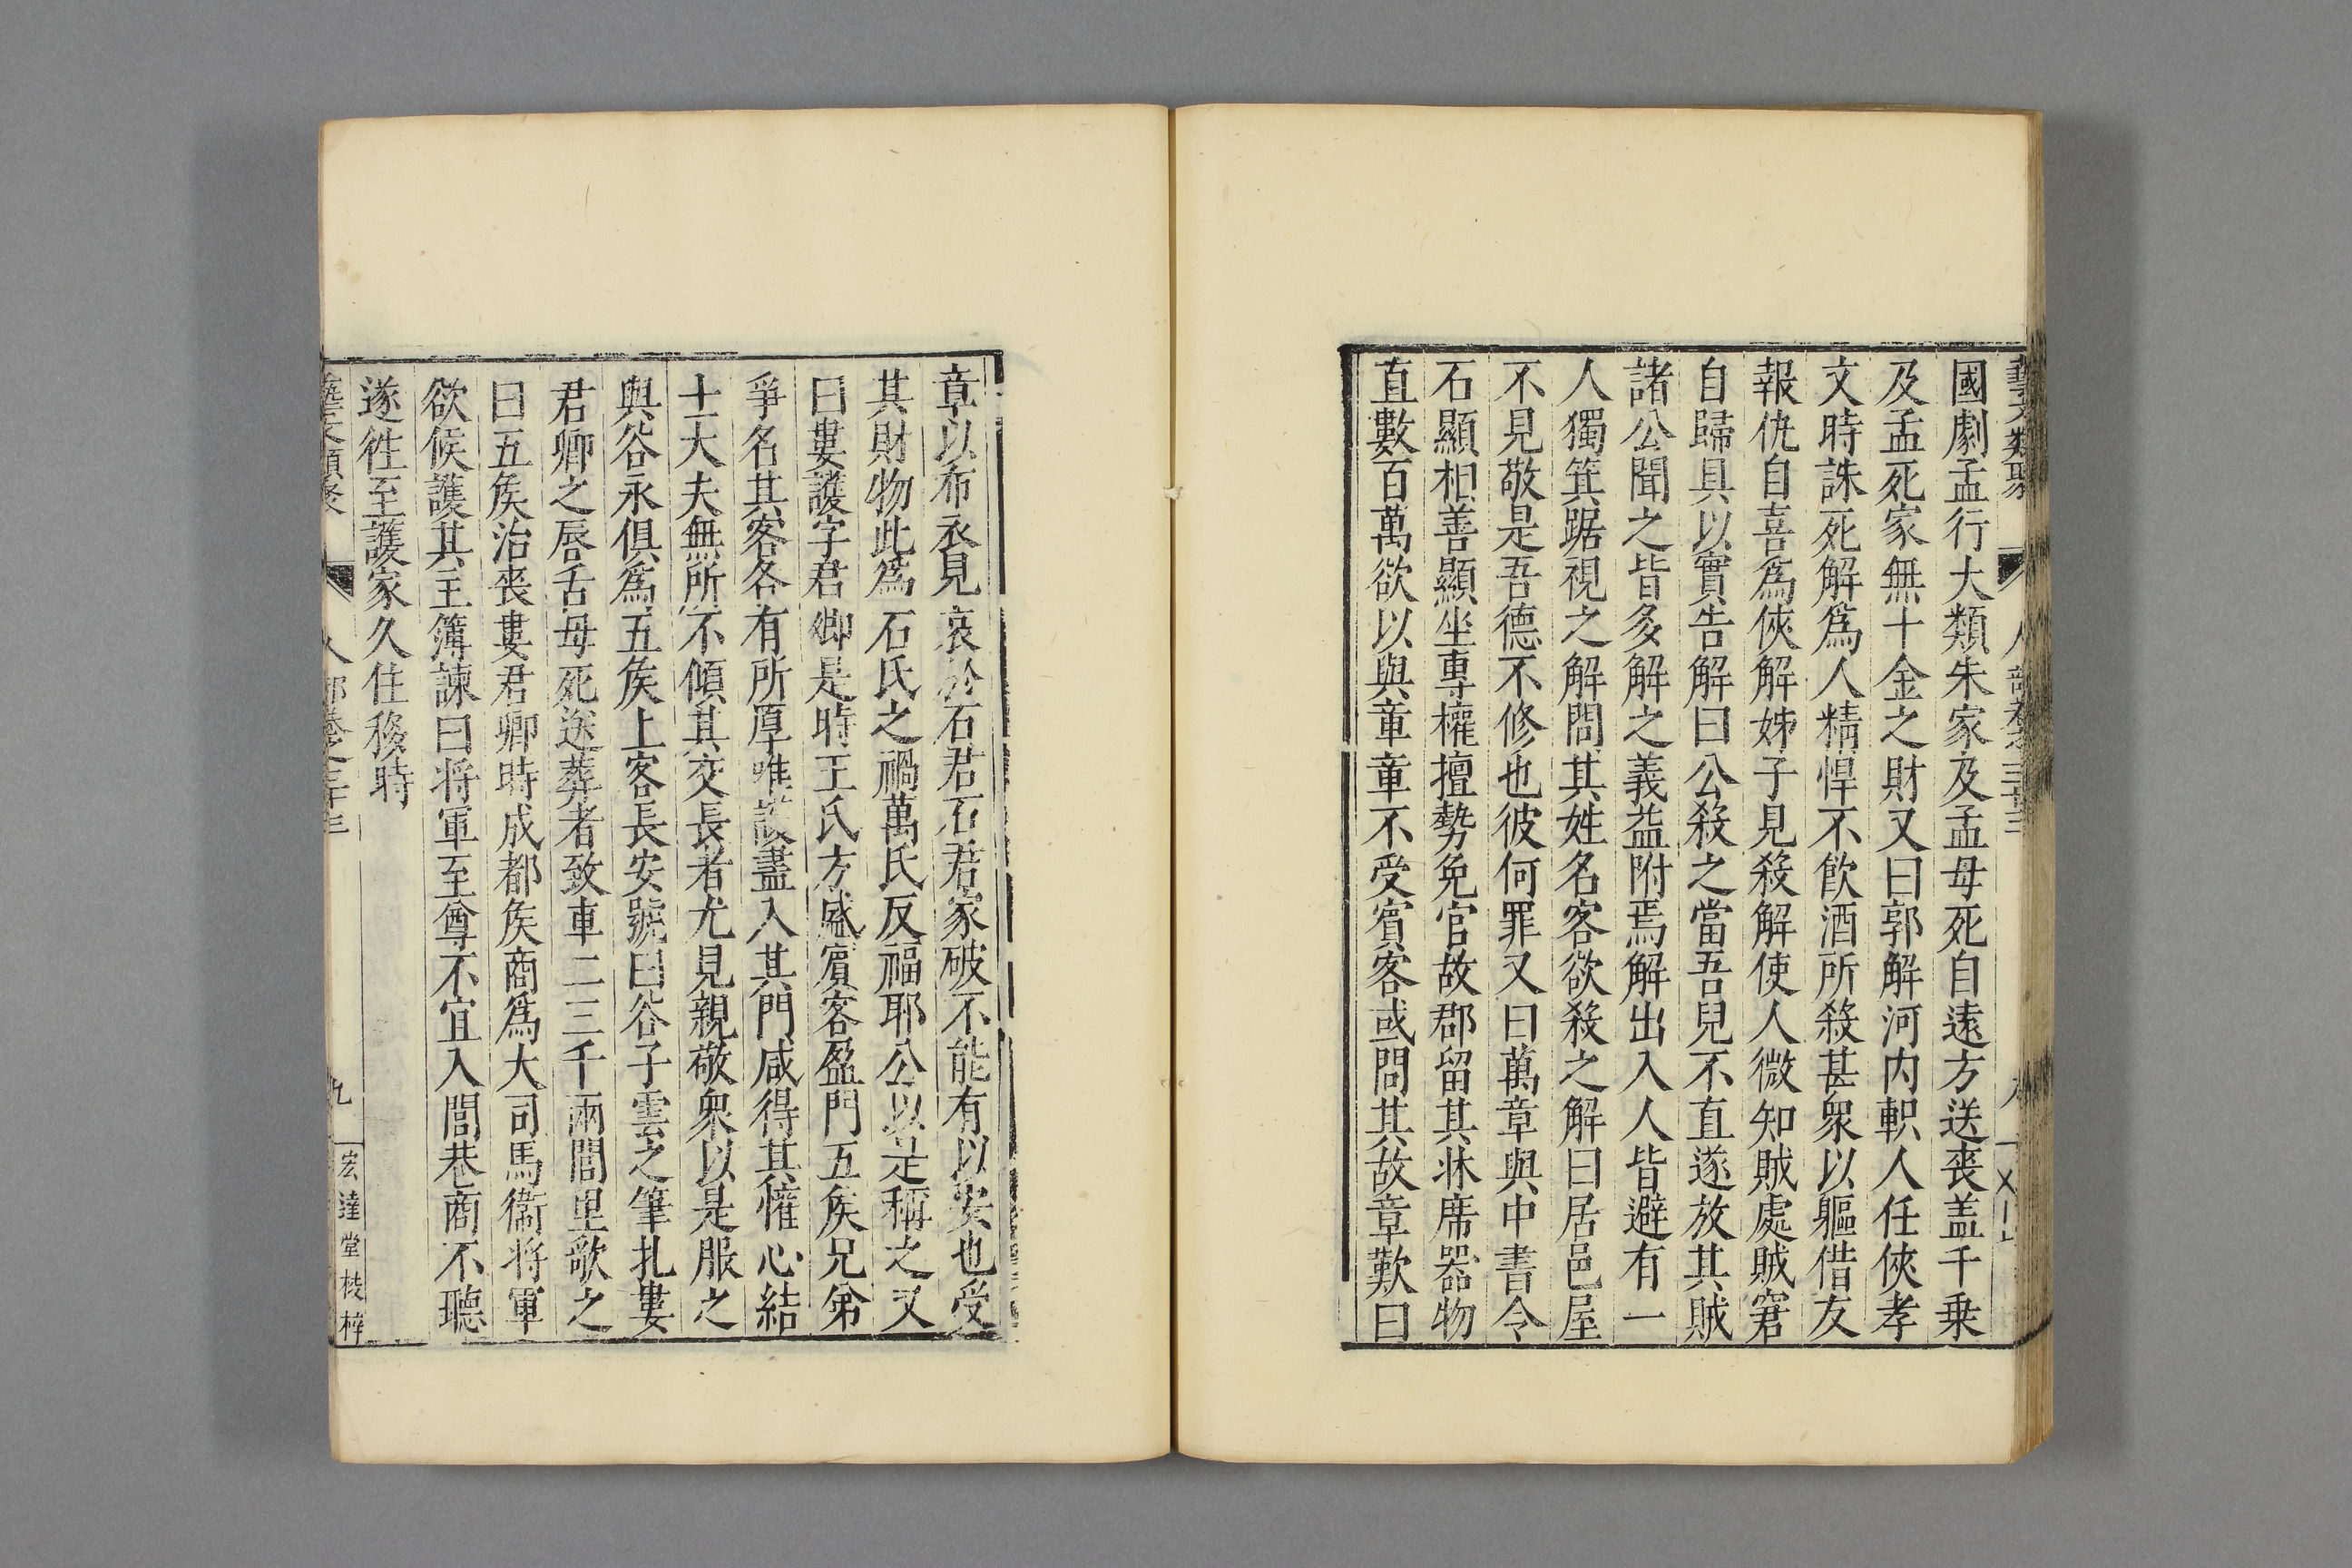 國劇孟行大類朱家及孟母死自遠方送喪盖千乗
及孟死家無十金之財又曰郭解河内軹人任俠孝
文時誅死解爲人精悍不飲酒所殺甚衆以軀借友
報仇自喜爲俠解姊子見殺解使人微知賊處賊窘
自歸具以實告解曰公殺之當吾兒不直遂放其賊
諸公聞之皆多解之義益附焉解出入人皆避有一
人獨箕踞視之解問其姓名客欲殺之解曰居邑屋
不見敬是吾德不修也彼何罪又曰萬章與中書令
石顯相善顯坐專權擅勢免官故郡留其牀席器物
直數百萬欲以與章章不受賓客或問其故章歎曰
章以布衣見哀於石君石君家破不能有以安也受
其財物此爲石氏之禍萬氏反福耶公以是稱之又
曰婁護字君卿是時王氏方盛賓客盈門五矦兄弟
爭名其客各有所厚唯護盡入其門咸得其懽心結
士大夫無所不傾其交長者尤見親敬衆以是服之
與谷永俱爲五矦上客長安號曰谷子雲之筆扎婁
君卿之唇舌母死送葬者致車二三千兩閭里歌之
曰五矦治喪婁君卿時成都矦商爲大司馬衞将軍
欲候護其主簿諫曰将軍至尊不宜入閭巷商不聽
遂徃至護家久住移時
藝文類聚 人部卷之三十三 九 宏達堂棱梓